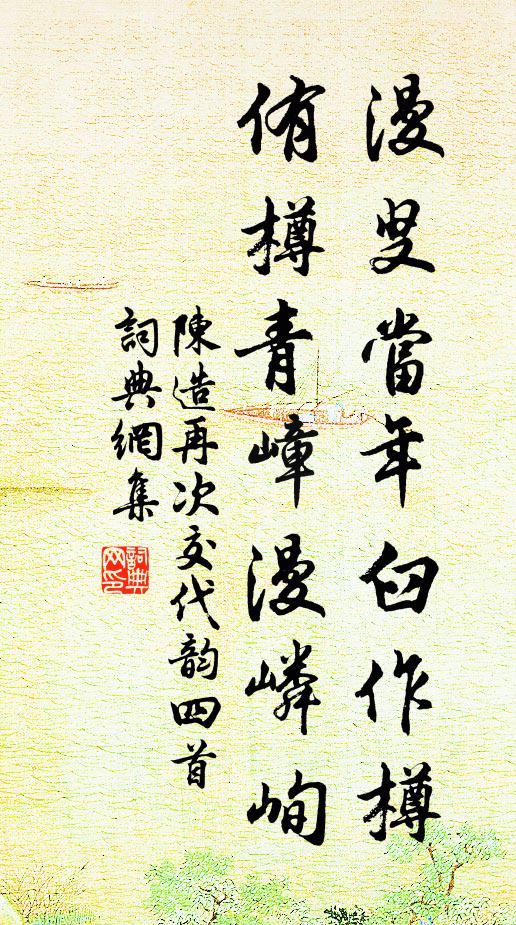 漫叟當年臼作樽
侑樽青嶂漫嶙峋
陳造再次交代韵四首
詞典網集
詞典网印